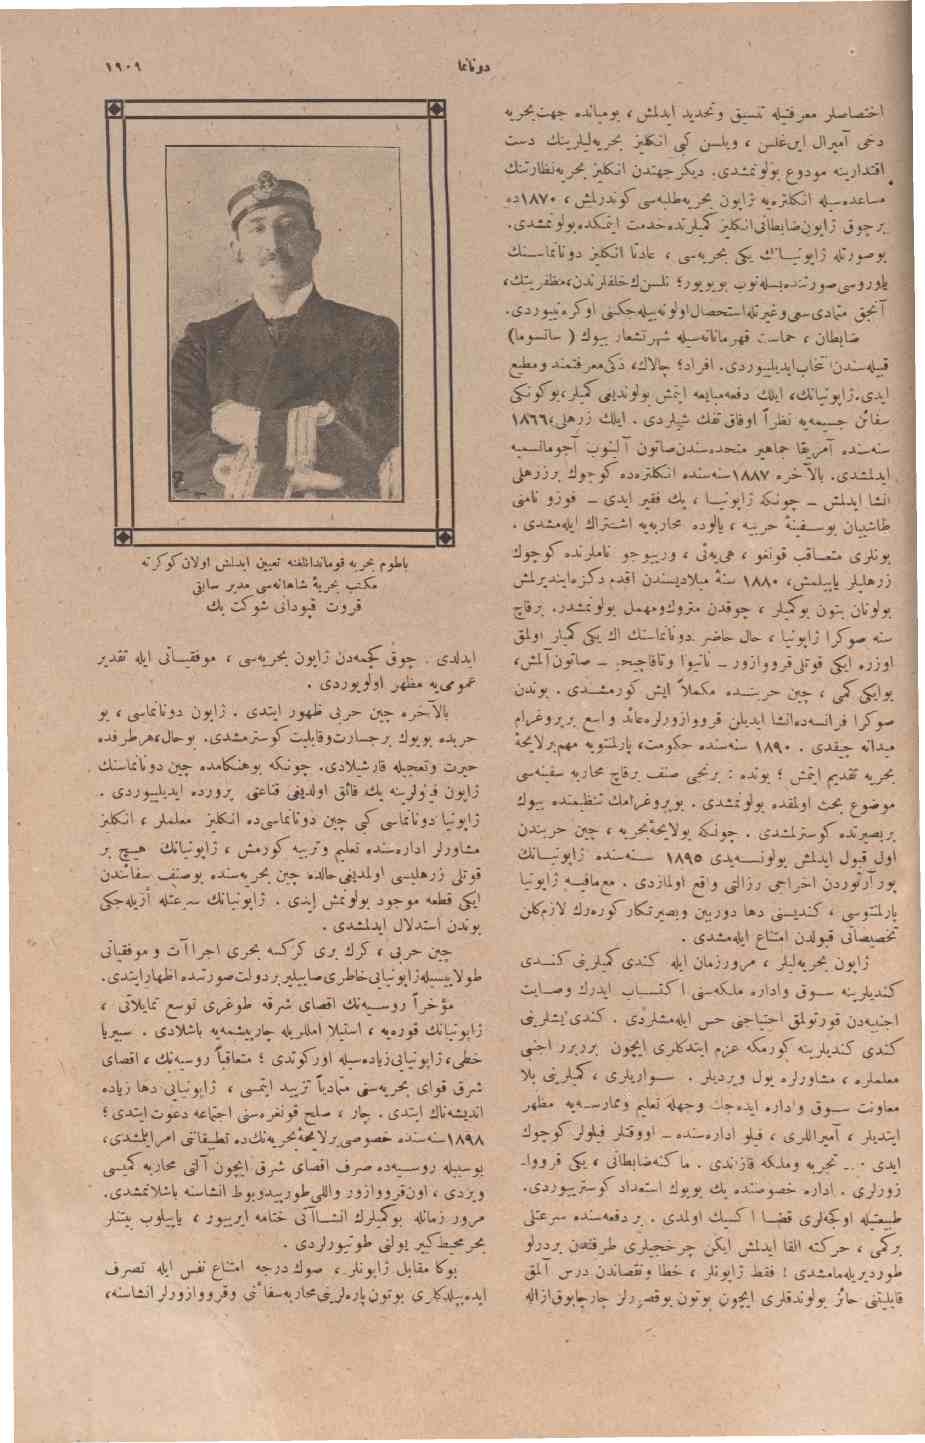 دوناما
١٩٠٩
اختصاصلر معرفتيله تنسيق وتحديد ايدلمش ، بوميانده جهت بحريه
دخى آميرال ايرغلس ، ويلسن كبى انكليز بحريه‌ليلرينك دست
اقتدارينه مودوع بولونمشدى. ديكر جهتدن انكليز بحريه نظارتنك
مساعده‌سيله انكلتره‌يه ژاپون بحريه طلبه‌سى كوندرلمش ، ١٨٧٠ده
برچوق ژاپون ضابطانى انكليز كميلرنده خدمت ايتمكده بولونمشدى.
بوصورتله ژاپونيانك يكى بحريه‌سى ، عادتا انكليز دونانماسنك
ياوروسى صورتنده بسله‌نوب بويويور؛ نلسن‌ك خلفلرندن، مظفريتك،
آنجق متمادى سعى وغيرتله استحصال اولونه‌بيله‌جكنى اوكره‌نييوردى.
ضابطان ، حماست قهرمانانه‌سيله شهرتشعار بيوك ( ساتسوما)
قبيله‌سندن انتخاب ايديلييوردى. افراد؛ چالاك، ذكى معرفتمند ومطيع
ايدى. ژاپونيانك، ايلك دفعه مبايعه ايتمش بولونديغى كميلر، بوكونكى
سفائن جسيمه‌يه نظراً اوفاق تفك شيلردى . ايلك زرهلى، ١٨٦٦
سنه‌سنده آمريقا جماهير متحده‌سندن صاتون آلينوب آجومانسميه
ايدلمشدى. بالآخره ١٨٨٧سنه‌سنده انكلتره‌ده كوچوك برزرهلى
انشا ايدلمش ــ چونكه ژاپونيا ، پك فقير ايدى ــ فوزو نامنى
طاشييان بوسفينۀ حربيه ، يالوده محاربه‌يه اشتراك ايله‌مشدى .
بونلرى متعاقب قونغو ، هى‌يه‌ئى ، وريبوجو ناملرنده كوچوك
زرهليلر ياپيلمش، ١٨٨٠ سنۀ ميلاديسندن اقدم دكزه ايندريلمش
بولونان بتون بوكميلر ، چوقدن متروك ومهمل بولونمشدر. برقاچ
سنه صوكرا ژاپونيا ، حال حاضر دونانماسنك اك يكى كميلر اولمق
اوزره ايكى قوتلى قرووازور ــ نانيوا وتاقاچيهو ــ صاتون آلمش،
بوايكى كمى ، چين حربنده مكملاً ايش كورمشدى . بوندن
صوكرا فرانسه‌ده انشا ايديلن قرووازورلره عائد واسع بروغرام
ميدانه چيقدى . ١٨٩٠ سنه‌سنده حكومت، پارلمنتويه مهم برلايحۀ
بحريه تقديم ايتمش ؛ بونده : برنجى صنف برقاچ محاربه سفينه‌سى
موضوع بحث اولمقده بولونمشدى . بوپروغرامك تنظيمنده بيوك
بربصيرتده كوسترلمشدى . چونكه بولايحۀبحريه ، چين حربندن
اول قبول ايدلمش بولونسه‌يدى ١٨٩٥ سنه‌سنده ژاپونيانك
پورآرتوردن اخراجى رزالتى واقع اولمازدى . مع‌مافيه ژاپونيا
پارلمنتوسى ، كنديسنى دها دوربين وبصيرتكار كوره‌رك لازم‌كلن
تخصيصاتى قبولدن امتناع ايله‌مشدى .
ژاپون بحريه‌ليلر ، مرورزمان ايله كندى كميلرينى كندى
كنديلرينه سوق واداره ملكه‌سنى اكتساب ايدرك وصايت
اجنبيه‌دن قورتولمق احتياجنى حس ايله‌مشلردى . كندى ايشلرينى
كندى كنديلرينه كورمكه عزم ايتدكلرى ايچون برربرر اجنبى
معلملره ، مشاورلره يول ويرديلر . سواريلرى ، كميلرينى بلا
معاونت سوق واداره ايده‌جك وجهله تعليم وممارسه‌يه مظهر
ايتديلر ، آميراللرى ، فيلو اداره‌سنده ــ اووقتلر فيلولر كوچوك
ايدى ــ تجربه وملكه قازاندى . ماكنه ضابطانى ، يكى قرووا-
زورلرى . اداره خصوصنده پك بويوك استعداد كوسترييوردى.
طبيعتيله اوكجه‌لرى قضا اكسيك اولمدى . بر دفعه‌سنده سرعتلى
بركمى ، حركته القا ايدلمش ايكن چرخجيلرى طرفندن بردرلو
طورديريله‌مامشدى ! فقط ژاپونلر ، خطا ونقصاندن درس آلمق
قابليتنى حائز بولوندقلرى ايچون بوتون بوقصورلر چارچابوق ازاله
باطوم بحريه قومانداتلغنه تعيين ايدلمش اولان كوكرته
مكتب بحريۀ شاهانه‌سى مدير سابقى
قروت قپودانى شوكت بك
ايدلدى . چوق كجمه‌دن ژاپون بحريه‌سى ، موفقياتى ايله تقدير
عمومى‌يه مظهر اولويوردى .
بالآخره چين حربى ظهور ايتدى . ژاپون دونانماسى ، بو
حربده بويوك برجسارت وقابليت كوسترمشدى. بوحال، هرطرفده
حيرت وتعجبله قارشيلادى. چونكه بوهنكامده چين دونانماسنك
ژاپون فيلولرينه پك فائق اولديغى قناعتى پرورده ايديلييوردى .
ژاپونيا دونانماسى كبى چين دونانماسى‌ده انكليز معلملر ، انكليز
مشاورلر اداره‌سنده تعليم وتربيه كورمش ، ژاپونيانك هيچ بر
قوتلى زرهليسى اولمديغى حالده چين بحريه‌سنده بوصنف سفائندن
ايكى قطعه موجود بولونمش ايدى . ژاپونيانك سرعتله ازيله‌جكى
بوندن استدلال ايدلمشدى .
چين حربى ، كرك برى كركسه بحرى اجراآت وموفقياتى
طولاييسيله ژاپونيايى خاطرى صاييلير بردولت صورتنده اظهار ايتدى.
مؤخراً روسيه‌نك اقصاى شرقه طوغرى توسع تمايلاتى ،
ژاپونيانك قوره‌يه ، استيلا امللريله چارپيشمه‌يه باشلادى . سيبريا
خطى، ژاپونيايى زياده‌سيله اوركوتدى ؛ متعاقباً روسيه‌نك ، اقصاى
شرق قواى بحريه‌سنى متمادياً تزييد ايتمسى ، ژاپونيايى دها زياده
انديشه‌ناك ايتدى . چار ، صلح قونغره‌سنى اجتماعه دعوت ايتدى؛
١٨٩٨سنه‌سنده خصوصى برلايحۀبحريه‌نك‌ده تطبيقاتنى امر ايتمشدى،
بوسببله روسيه‌ده صرف اقصاى شرق ايچون آلتى محاربه كميسى
ويردى ، اون قرووازور واللى طورپيدوبوط انشاسنه باشلانمشدى.
مرور زمانله بوكميلرك انشاآتى ختامه ايرييور ، ياپيلوب بيتنلر
بحرمحيط كبير يولنى طوتيورلردى .
بوكا مقابل ژاپونلر ، صوك درجه امتناع نفس ايله تصرف
ايده‌بيلدكلرى بوتون پاره‌لرينى محاربه سفائنى وقرووازورلر انشاسنه،